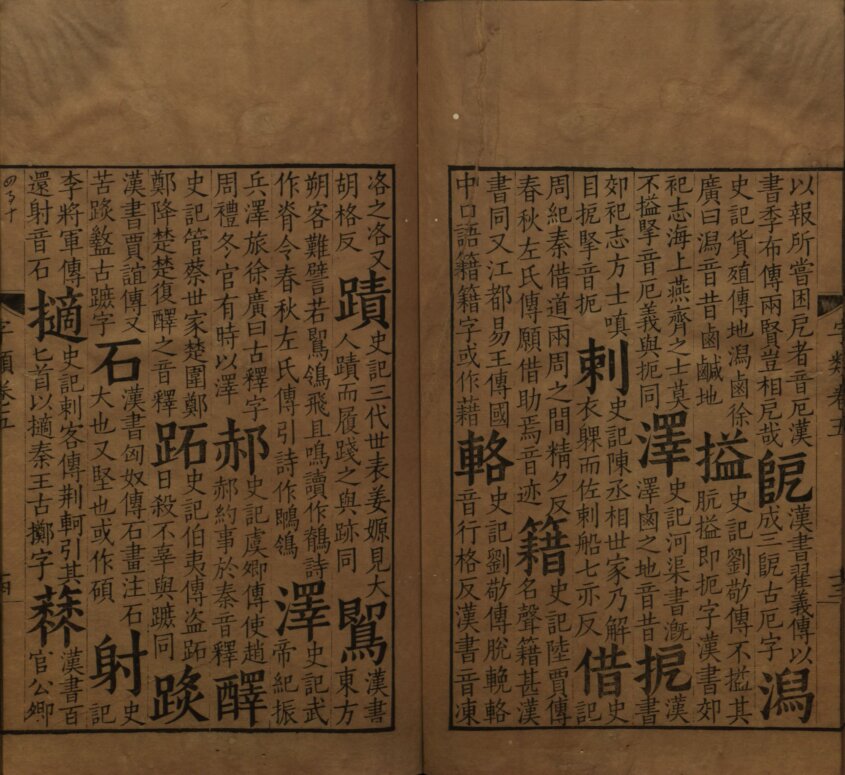 以報所嘗困戹者音厄漢
書季布傳兩賢豈相戹哉 䖐 漢書翟義傳以成三䖐古厄字 潟
史記貨殖傳地潟鹵徐
廣曰潟音昔鹵鹹地 搤 史記劉敬傳不搤其肮搤即扼字漢書郊
祀志海上燕齊之士莫
不搤掔音厄義與扼同 澤 史記河渠書溉澤鹵之地音昔 扼 漢書
郊祀志方士嗔
目扼掔音扼 刺 史記陳丞相世家乃解衣躶而佐刺船七亦反 借 史記
周紀秦借道兩周之間精夕反
春秋左氏傳願借助焉音迹 籍 史記陸賈傳名聲籍甚漢
書同又江都易王傳國
中口語籍籍字或作藉 輅 史記劉敬傳脫輓輅音行格反漢書音凍
洛之洛又
胡格反 蹟 史記三代世表姜嫄見大人蹟而履踐之與跡同 鴽 漢書東方
朔客難譬若鴽鴒飛且鳴讀作鶺詩
作脊令春秋左氏傳引詩作鴟鴒 澤 史記武帝紀振
兵澤旅徐廣曰古釋字
周禮冬官有時以澤 郝 史記虞卿傳使趙郝約事於秦音釋 醳
史記管蔡世家楚圍鄭
鄭降楚楚復醳之音釋 跖 史記伯夷傳盜跖日殺不辜與蹠同 䠒
漢書賈誼傳又
苦䠒盭古蹠字 石 漢書匈奴傳石畫注石大也又堅也或作碩 射 史記
李將軍傳
還射音石 擿 史記刺客傳荆軻引其匕首以擿秦王古擲字 䔾 漢書百官公卿
字類卷五
十三
字類卷五
十四